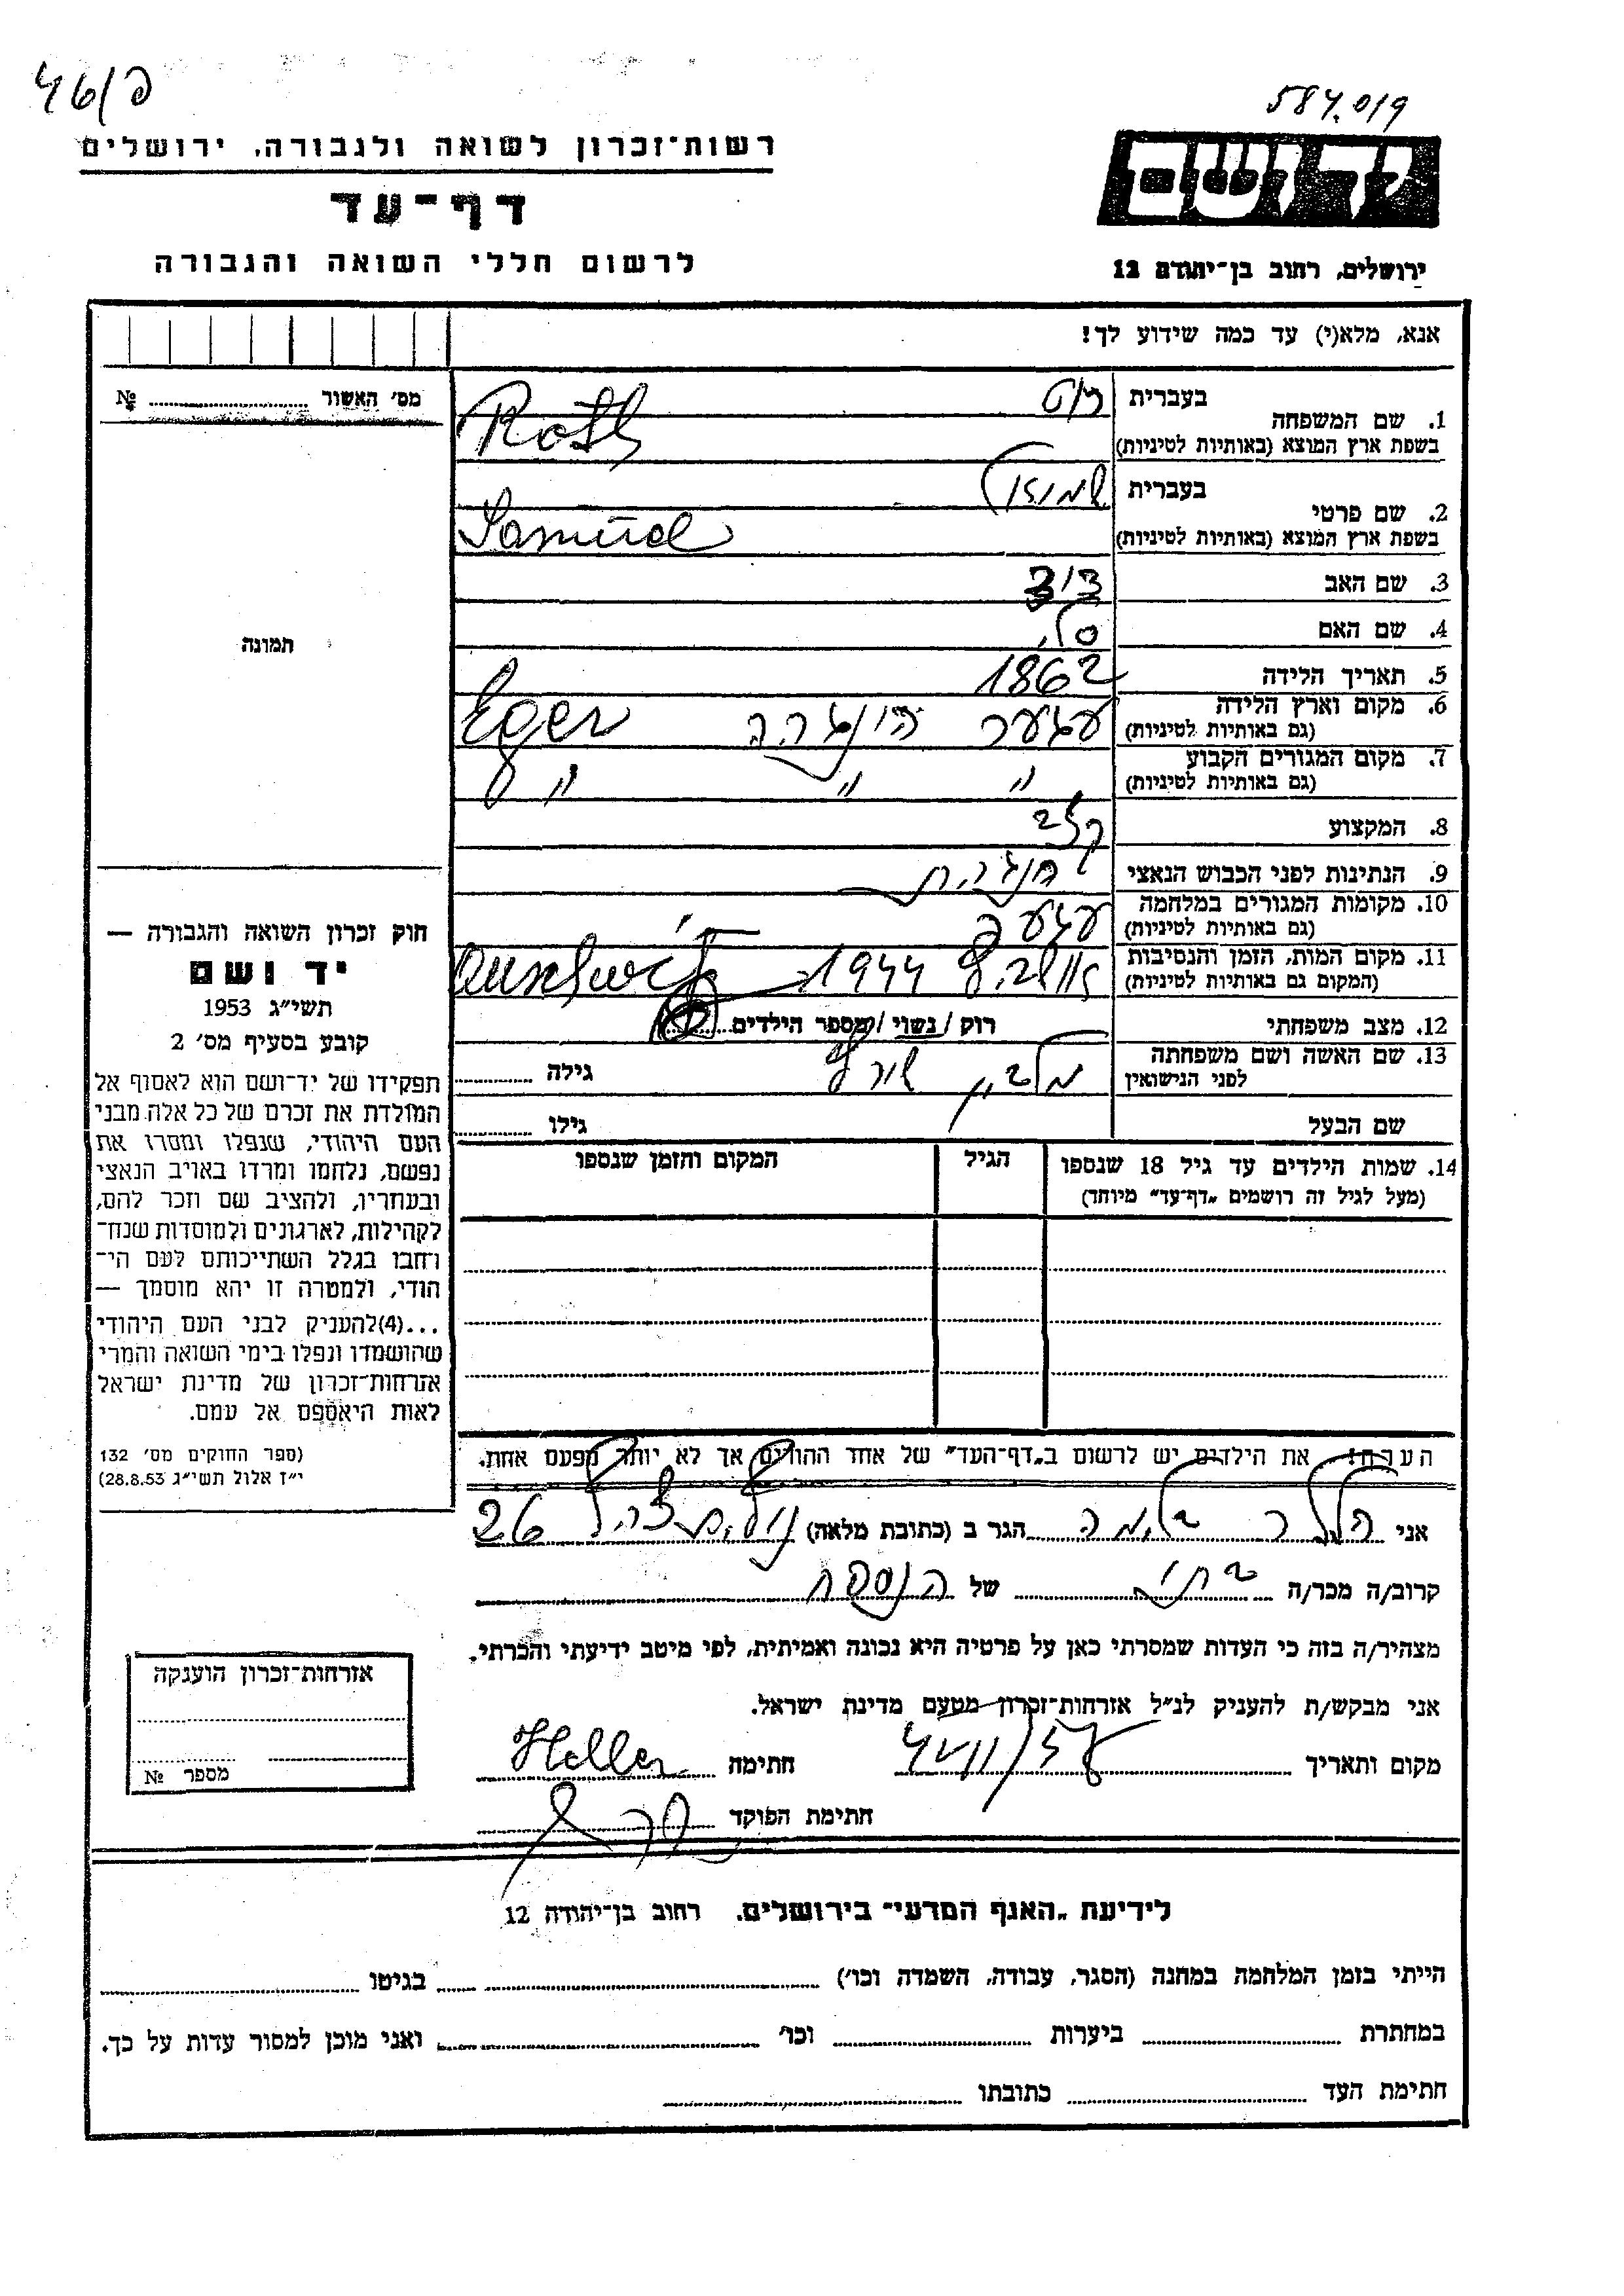 46/פ
587.019
רשות־זכרון לשואה ולגבורה, ירושלים
דף־עד
לרשום חללי השואה והגבורה
יד ושם
ירושלים, רחוב בן־יהודה 12
אנא, מלא(י) עד כמה שידוע לך!
מס' האשור № 
תמונה
חוק זכרון השואה והגבורה —
יד ושם
תשי״ג 1953
קובע בסעיף מס' 2
תפקידו של יד־ושם הוא לאסוף אל
המולדת את זכרם של כל אלה מבני
העם היהודי, שנפלו ומסרו את
נפשם, נלחמו ומרדו באויב הנאצי
ובעוזריו, ולהציב שם וזכר להם,
לקהילות, לארגונים ולמוסדות שנח־
רחבו בגלל השתייכותם לעם הי־
הודי, ולמטרה זו יהא מוסמך —
...(4)להעניק לבני העם היהודי
שהושמדו ונפלו בימי השואה והמרי
אזרחות־זכרון של מדינת ישראל
לאות היאספם אל עמם.
(ספר החוקים מס' 132
י״ז אלול תשי״ג 28.8.53)
1. שם המשפחה בעברית רוט
בשפת ארץ המוצא (באותיות לטיניות) Roth
2. שם פרטי בעברית שמואל
בשפת ארץ המוצא (באותיות לטיניות) Samuel
3. שם האב
4. שם האם
5. תאריך הלידה 1862
6. מקום וארץ הלידה (גם באותיות לטיניות) Eger
7. מקום המגורים הקבוע (גם באותיות לטיניות) " " "
8. המקצוע
9. הנתינות לפני הכבוש הנאצי
10. מקומות המגורים במלחמה (גם באותיות לטיניות)
11. מקום המות, הזמן והנסיבות (המקום גם באותיות לטיניות) 1944
12. מצב משפחתי רוק/נשוי/מספר הילדים
13. שם האשה ושם משפחתה לפני הנישואין גילה
שם הבעל גילו
14. שמות הילדים עד גיל 18 שנספו הגיל המקום והזמן שנספו
(מעל לגיל זה רושמים „דף־עד״ מיוחד)
הערה: את הילדים יש לרשום ב„דף־העד״ של אחד ההורים אך לא יותר מפעם אחת.
אני הלר הגר ב (כתובת מלאה) 26
קרוב/ה מכר/ה של הנספה
מצהיר/ה בזה כי העדות שמסרתי כאן על פרטיה היא נכונה ואמיתית, לפי מיטב ידיעתי והכרתי.
אני מבקש/ת להעניק לנ״ל אזרחות־זכרון מטעם מדינת ישראל.
מקום ותאריך חתימה Heller
חתימת הפוקד
אזרחות־זכרון הוענקה
מספר №
לידיעת „האגף המדעי״ בירושלים, רחוב בן־יהודה 12
הייתי בזמן המלחמה במחנה (הסגר, עבודה, השמדה וכו') בגיטו
במחתרת ביערות וכו' ואני מוכן למסור עדות על כך.
חתימת העד כתובתו